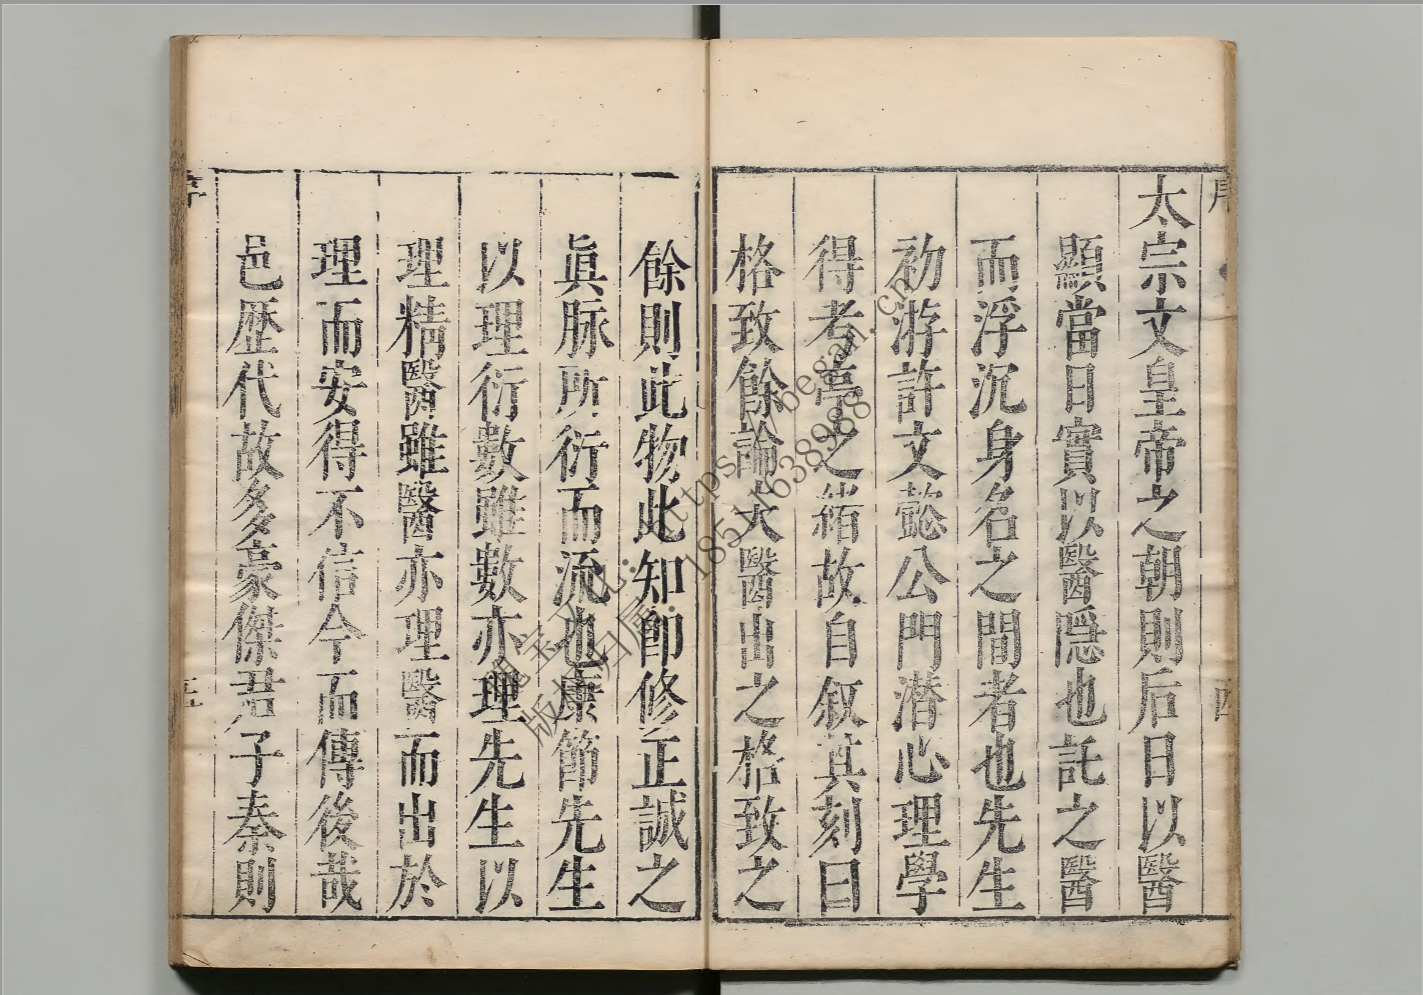 太宗文皇帝之朝則后日以醫
顯當日實以醫隱也託之醫
而浮沉身名之間者也先生
初游許文懿公門潜心理學
得者亭之緒故自叙其刻曰
格致餘論夫醫出之格致之
餘則此物此知卽修正誠之
眞脉所衍而流也康節先生
以理衍數雖數亦理先生以
理精醫雖醫亦理醫而出於
理而安得不信今而傳後哉
邑歷代故多豪傑君子秦則
序
四